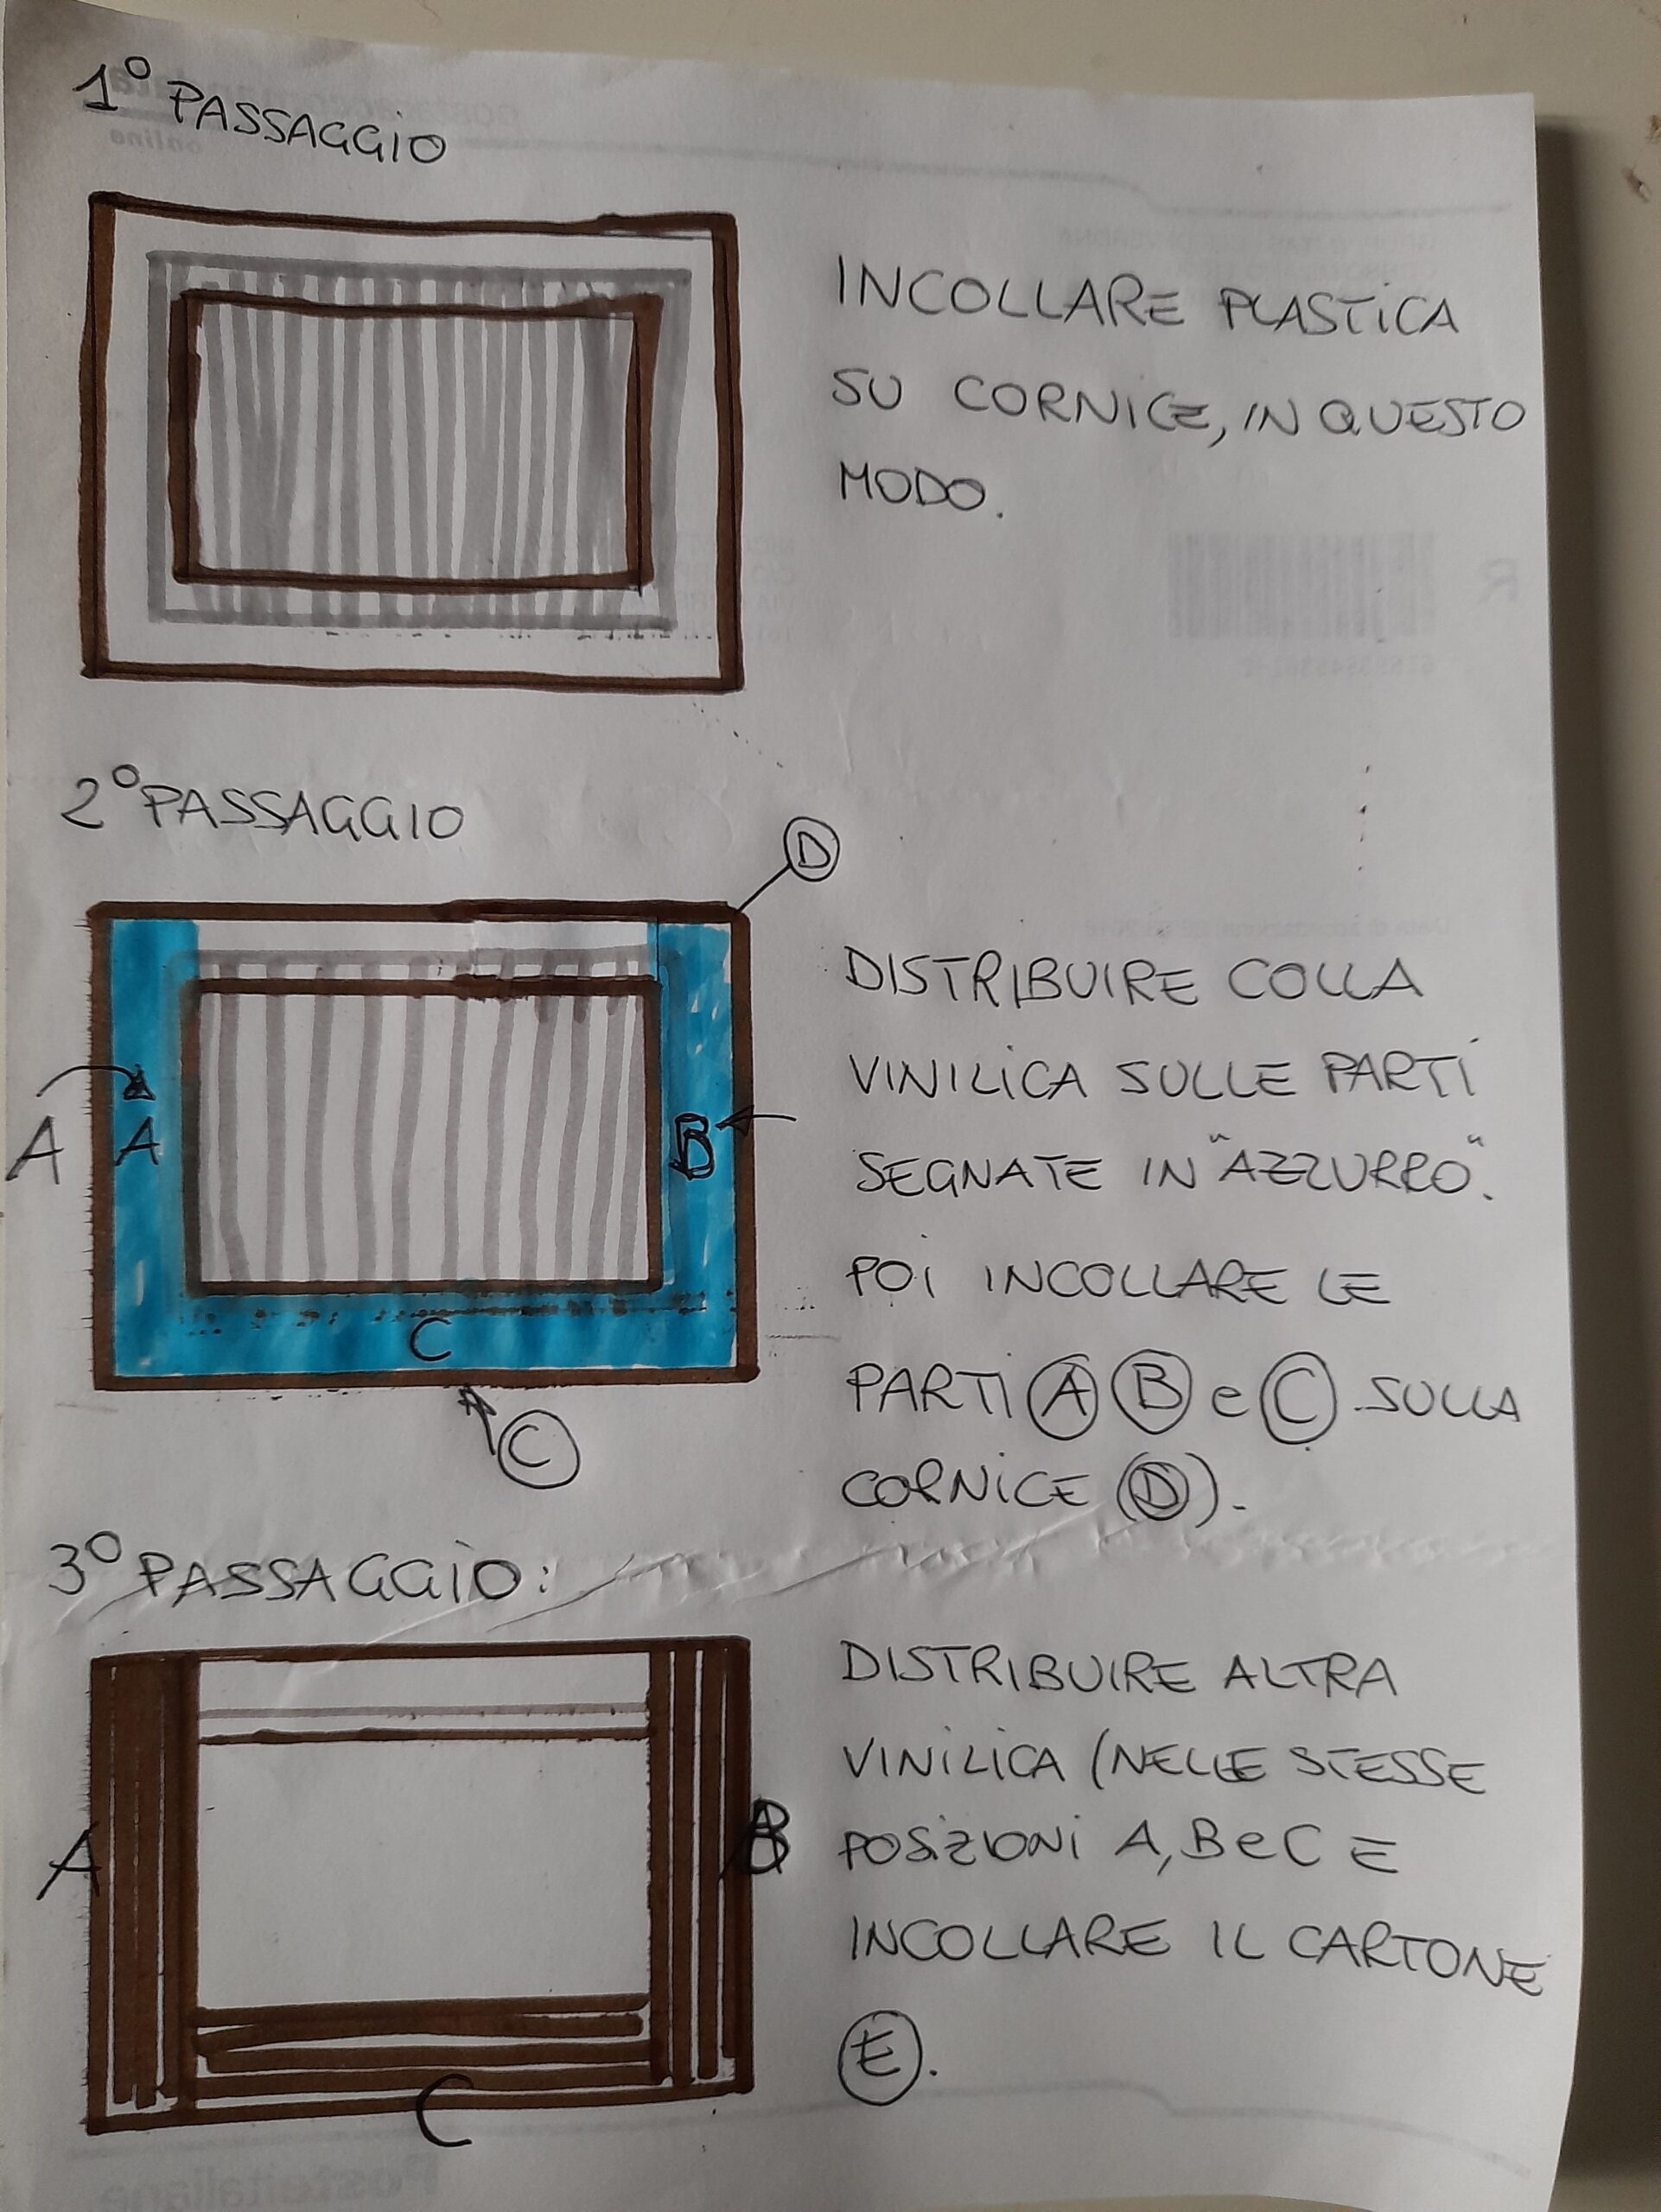 1° PASSAGGIO
INCOLLARE PLASTICA
SU CORNICE, IN QUESTO
MODO.
2° PASSAGGIO
D
A
A
B
C
C
DISTRIBUIRE COLLA
VINILICA SULLE PARTI
SEGNATE IN "AZZURRO".
POI INCOLLARE LE
PARTI A B e C SULLA
CORNICE (D).
3° PASSAGGIO:
A
B
C
DISTRIBUIRE ALTRA
VINILICA (NELLE STESSE
POSIZIONI A, B e C E
INCOLLARE IL CARTONE
E.
Posteitaliane